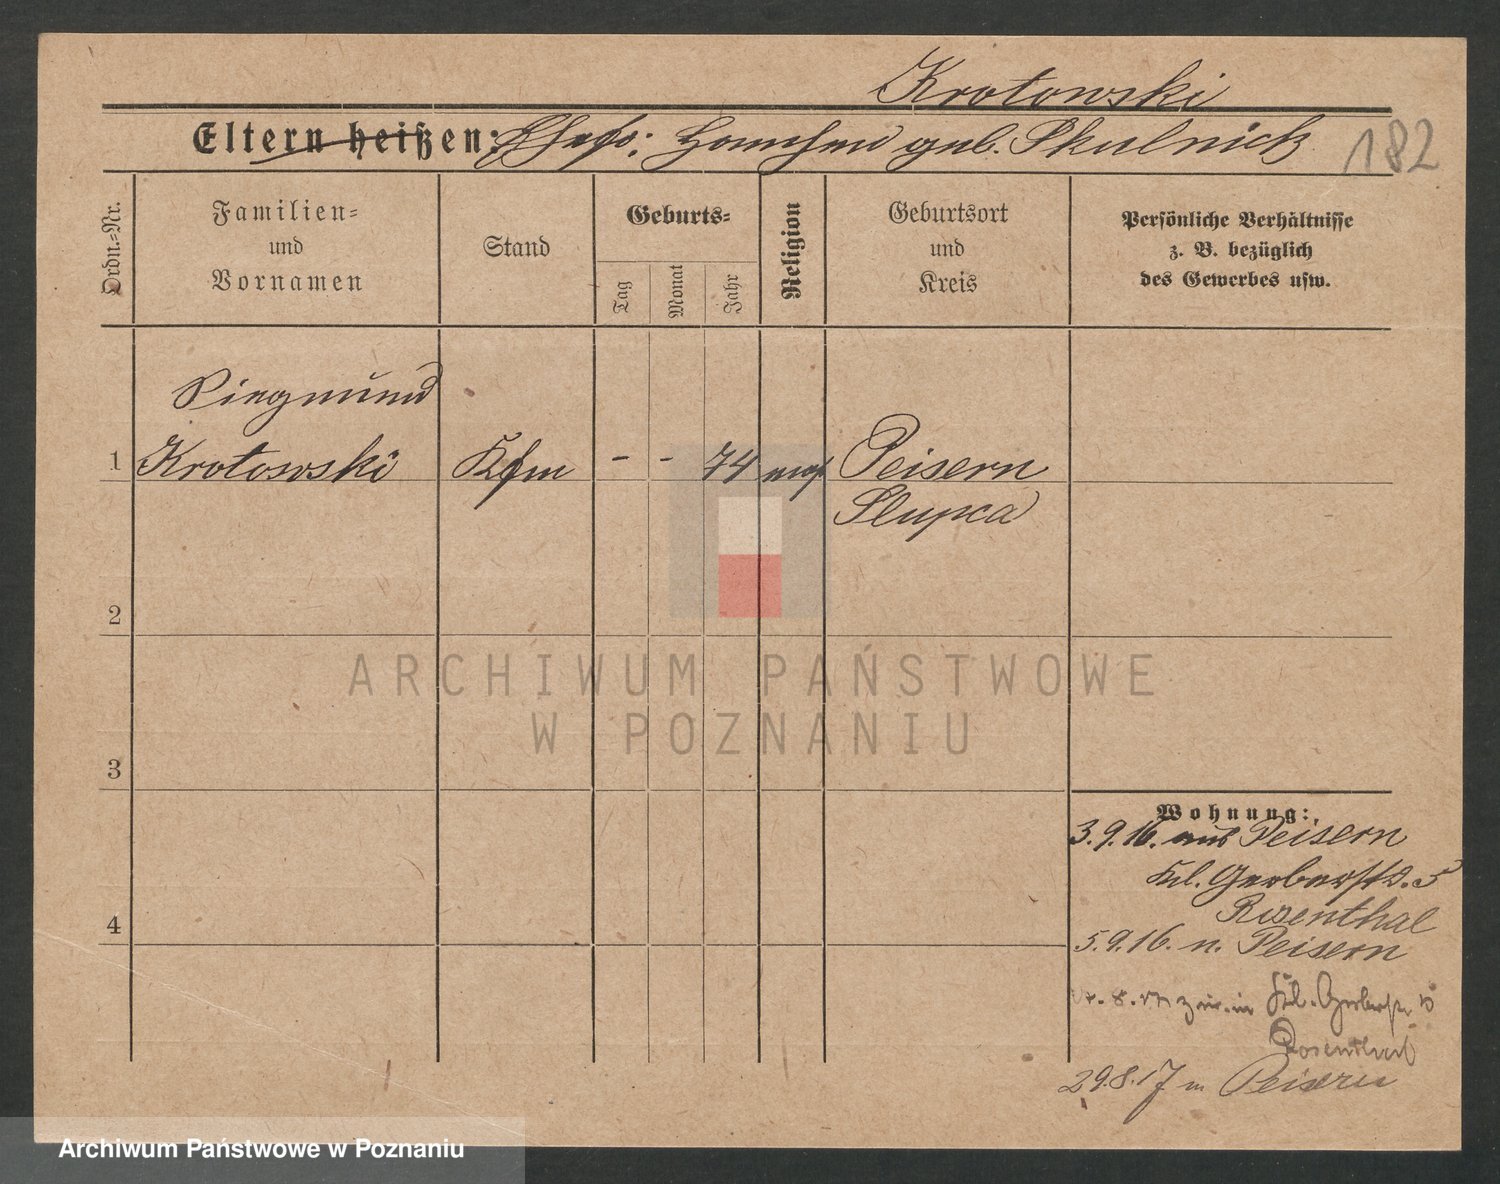 Krotowski
Eltern heißen: Ehefr: Hannchen geb. Skulnick
182
Ordn.-Nr.
Familien-
und
Vornamen
Stand
Geburts-
Tag
Monat
Jahr
Religion
Geburtsort
und
Kreis
Persönliche Verhältnisse
z. B. bezüglich
des Gewerbes usw.
Siegmund
1 Krotowski Kfm - - 74 mos Peisern
Slupca
2
ARCHIWUM PAŃSTWOWE
W POZNANIU
3
Wohnung:
3.9.16. aus Peisern
Kl. Gerberstr. 5
Rosenthal
4
5.9.16. n. Peisern
8. 17 zur. in Kl. Gerberstr. 5
Rosenthal
29.8.17 n Peisern
Archiwum Państwowe w Poznaniu